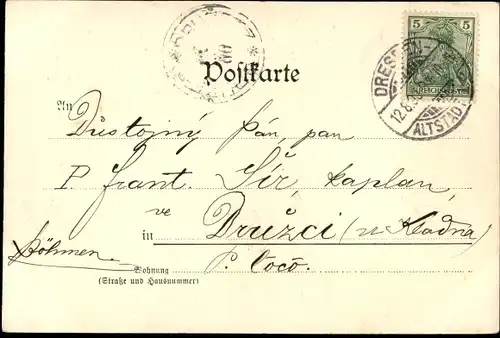 5 5
REICHSPOST
DRESDEN-
ALTSTADT
12.8.
Postkarte
An
Důstojný Pán, pan
P. Frant. Šír, kaplan,
ve
in Družci (u Kladna)
Böhmen
P. Točo.
Wohnung
(Straße und Hausnummer)